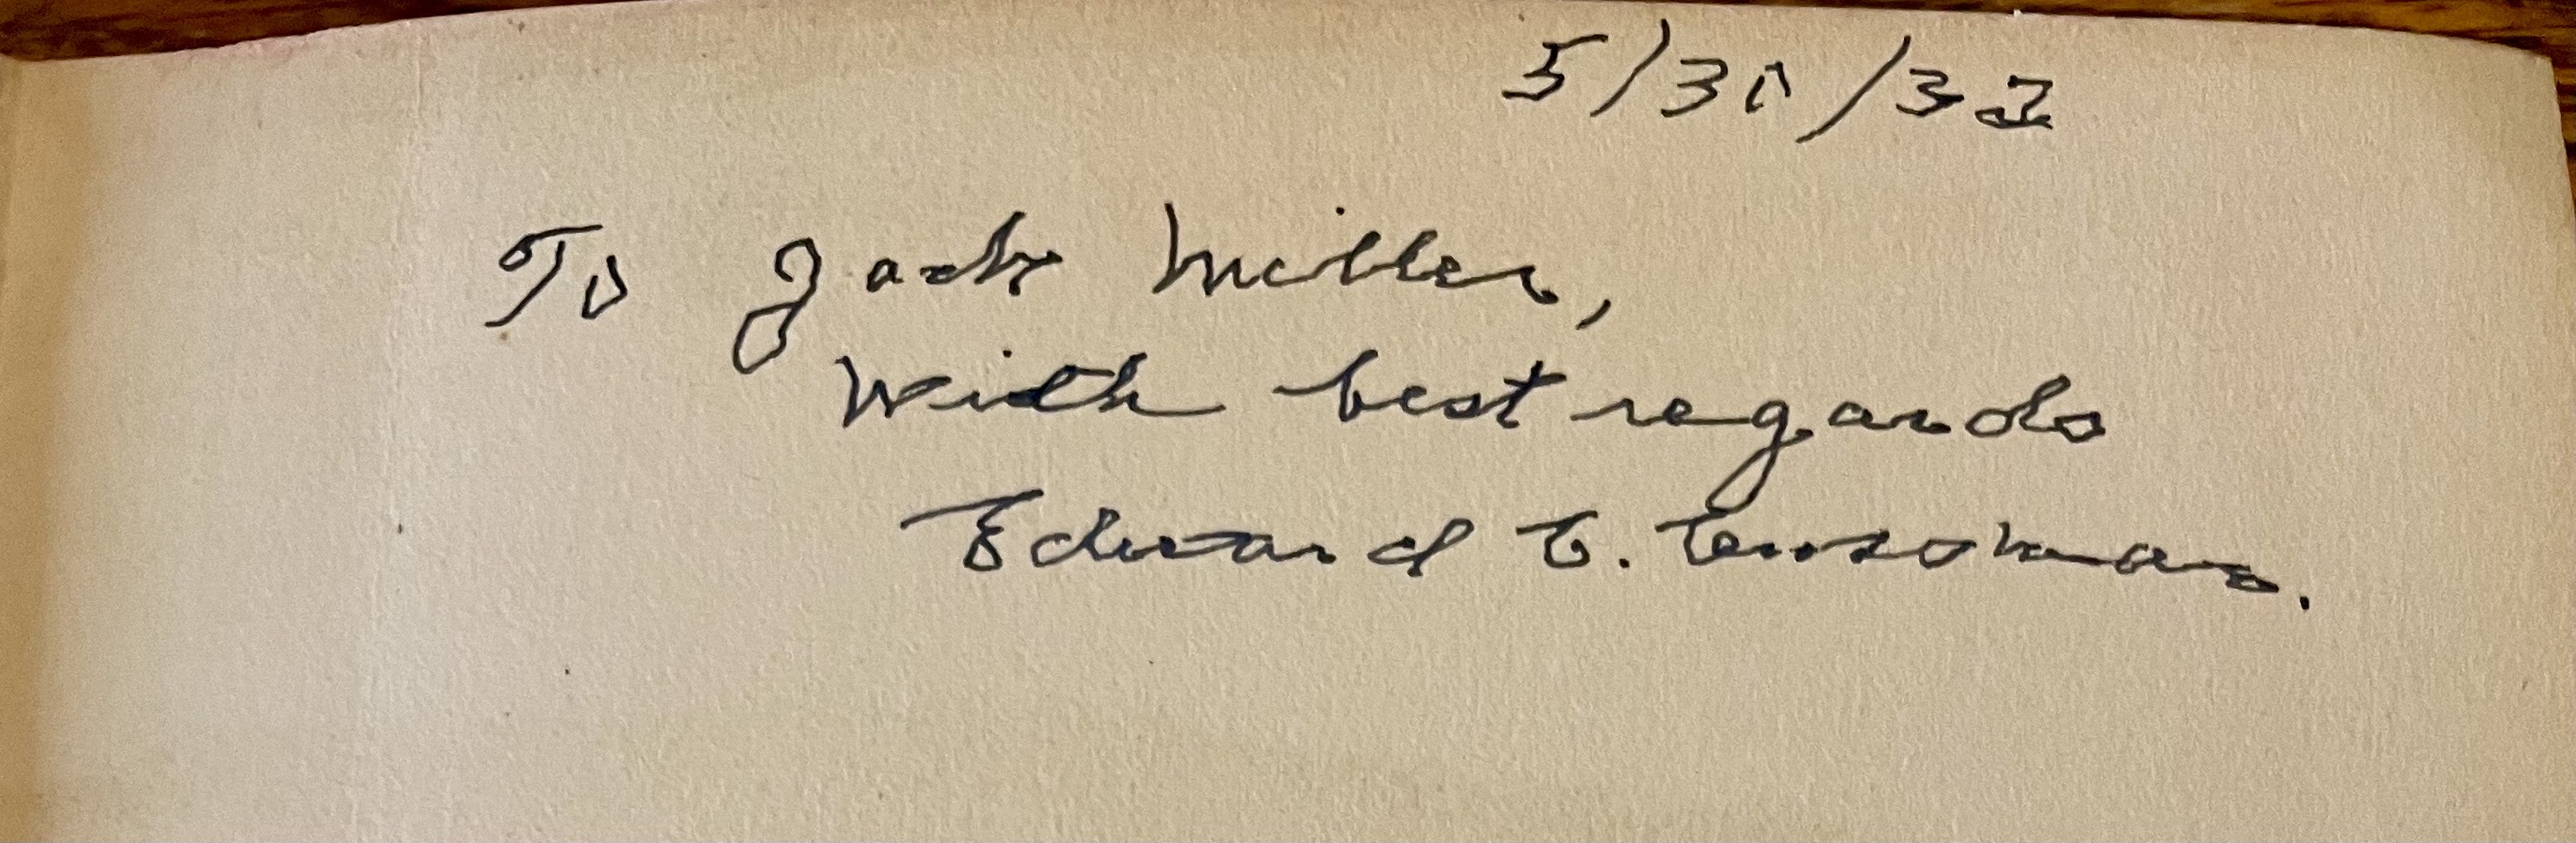 5/30/32
To Jack Miller,
With best regards
Edward E.